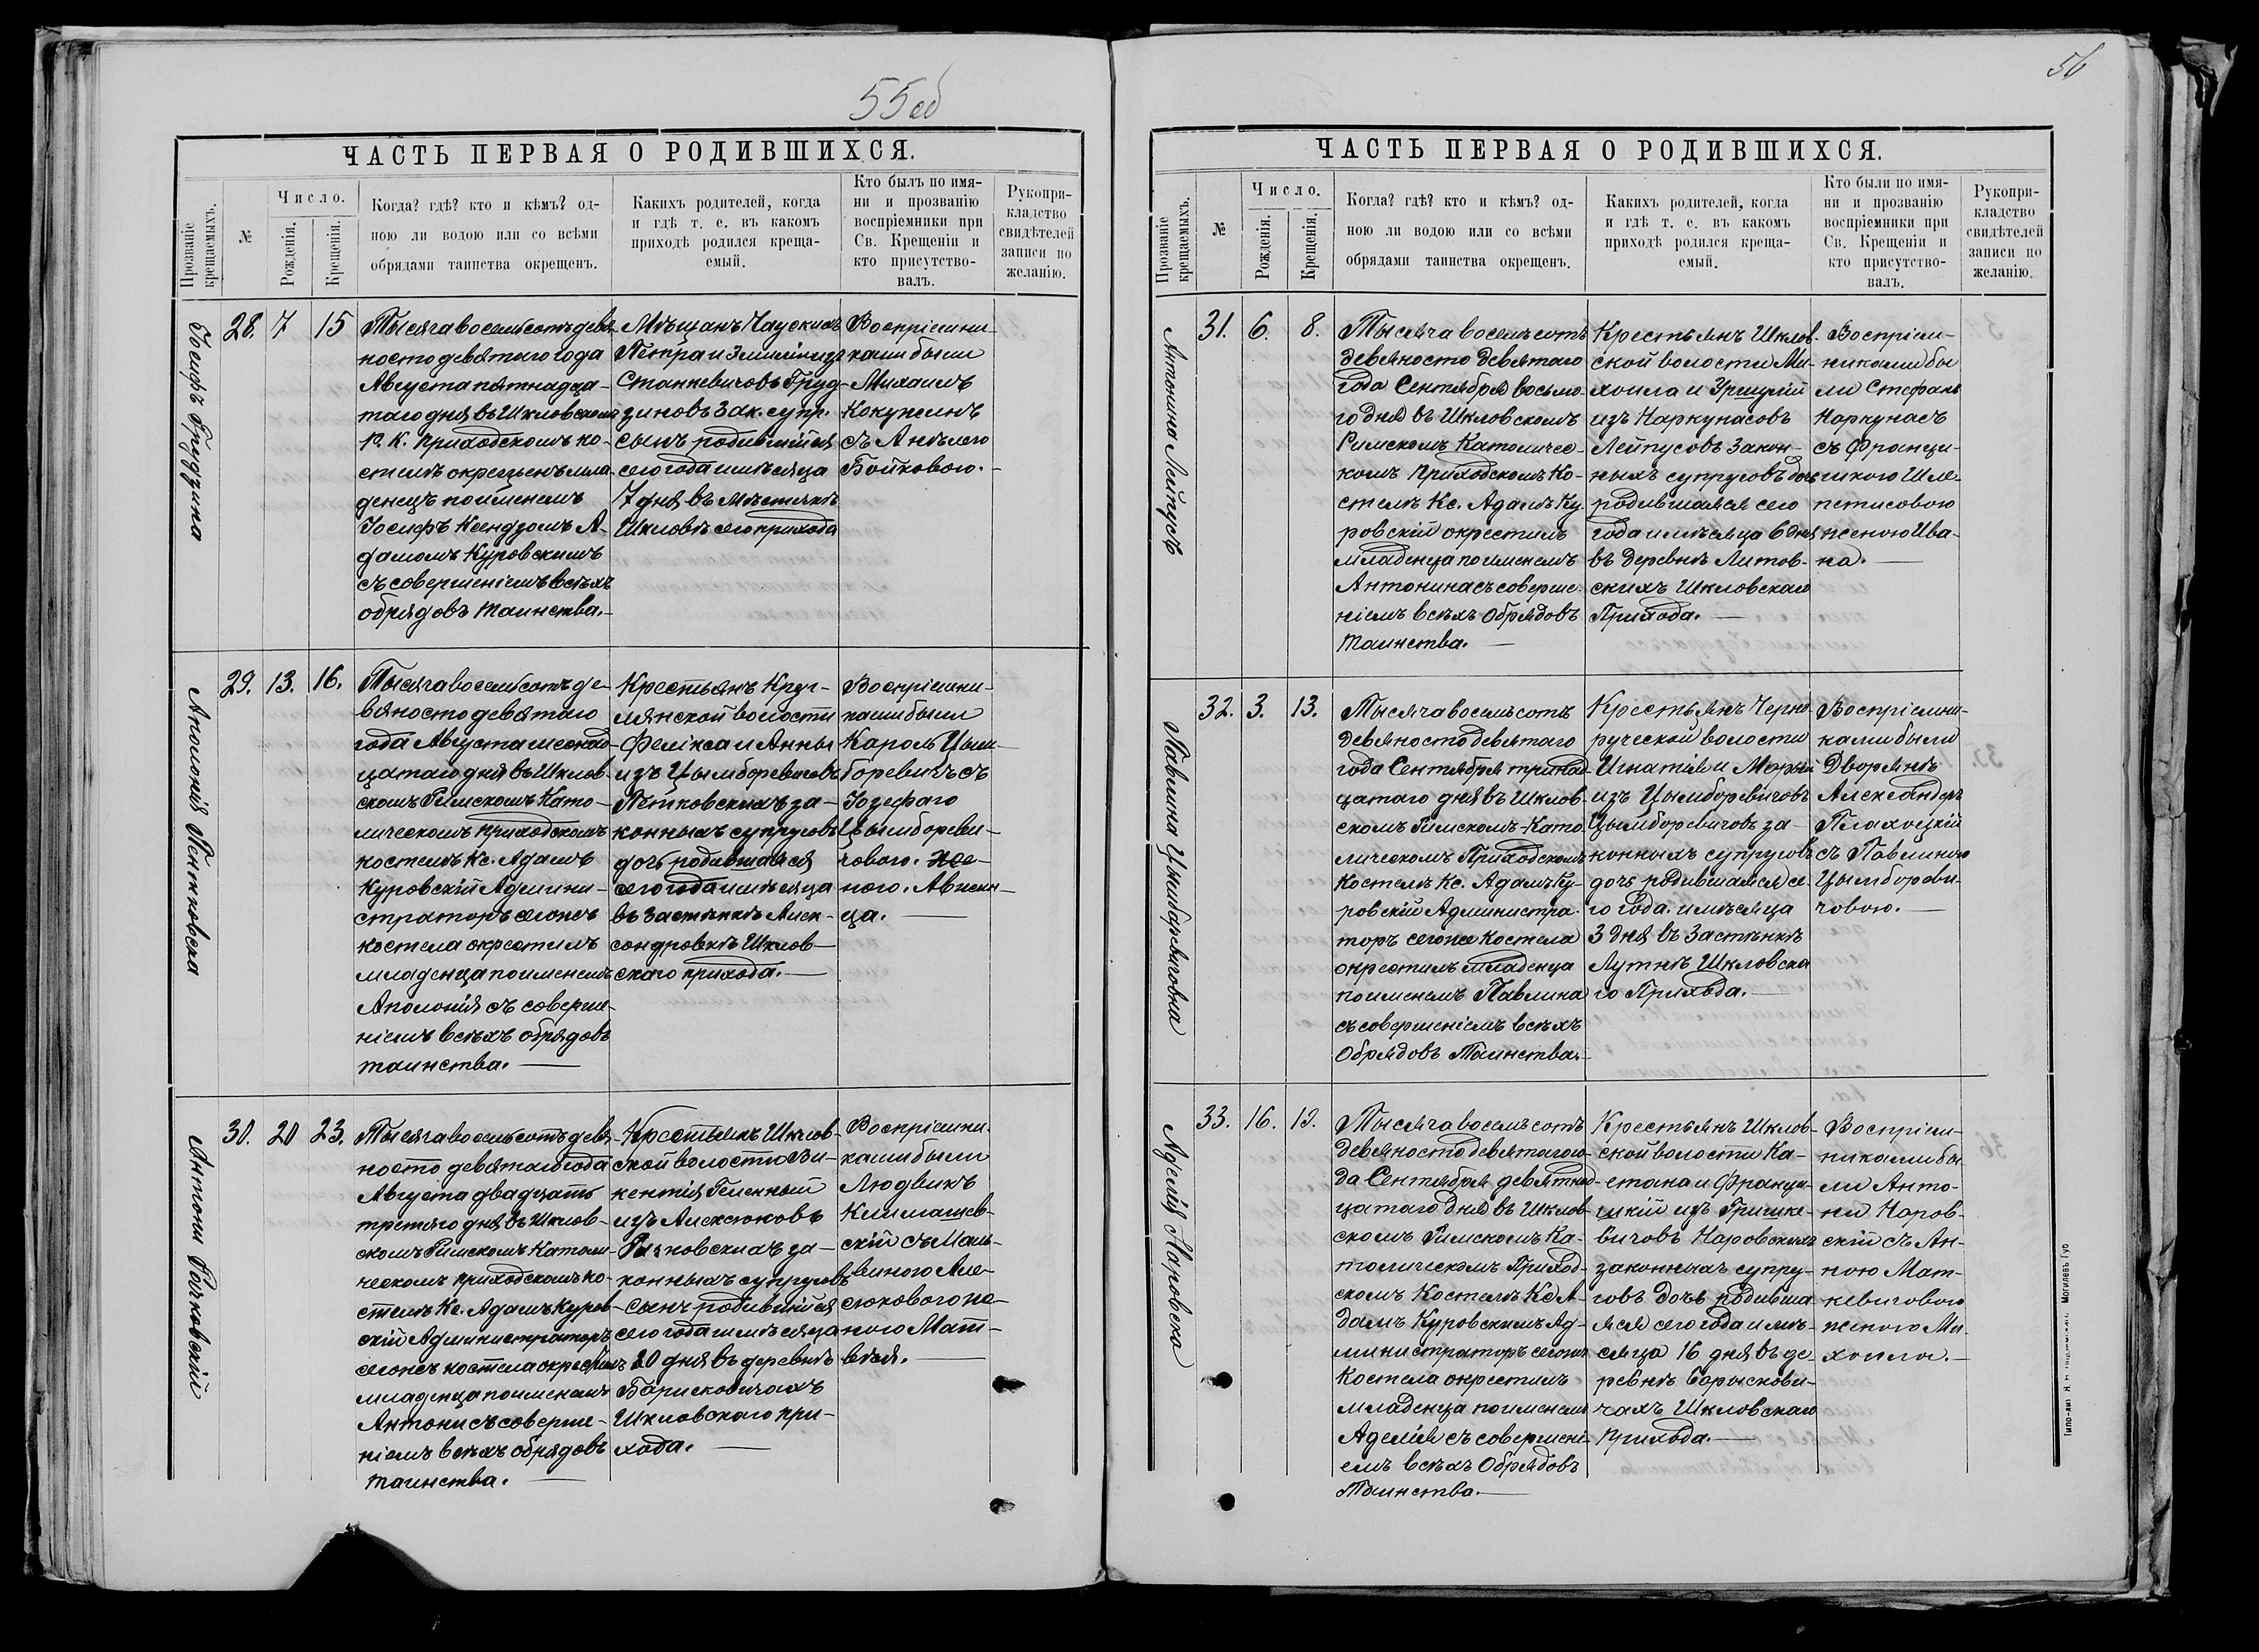 55об
ЧАСТЬ ПЕРВАЯ О РОДИВШИХСЯ.
Прозваніе крещаемыхъ.
№
Число.
Рожденія.
Крещенія.
Когда? гдѣ? кто и кѣмъ? од-
ною ли водою или со всѣми
обрядами таинства окрещенъ.
Какихъ родителей, когда
и гдѣ т. е. въ какомъ
приходѣ родился креща-
емый.
Кто былъ по имя-
ни и прозванію
воспріемники при
Св. Крещеніи и
кто присутство-
валъ.
Рукопри-
кладство
свидѣтелей
записи по
желанію.
Іосифъ Грудзина
28. 7 15
Тысяча восемьсотъ девя-
носто девятаго года
Августа пятнадца-
таго дня въ Шкловскомъ
Р. К. приходскомъ ко-
стелѣ окрещенъ мла-
денецъ по имснемъ
Іосифъ Ксендзомъ А-
дамомъ Куровскимъ
съ совершеніемъ всѣхъ
обрядовъ таинства.
Мѣщанъ Чаускихъ
Петра и Эмиліи изъ
Станкевичовъ Груд-
зиновъ зак. супр.
сынъ родившійся
сего года и мѣсяца
7 дня въ мѣстечкѣ
Шкловѣ сего прихода
Воспріемни-
ками были
Михаилъ
Кокуженъ
съ Анѣлею
Бойковою.
Аполонія Пѣтковска
29. 13. 16.
Тысяча восемьсотъ де-
вяносто девятаго
года Августа шестнад-
цатаго дня въ Шклов-
скомъ Римскомъ Като-
лическомъ приходскомъ
костелѣ Кс. Адамъ
Куровскій Админи-
страторъ сегожъ
костела окрестилъ
младенца по именемъ
Аполонія съ соверше-
ніемъ всѣхъ обрядовъ
таинства.
Крестьянъ Круг-
лянской волости
Фелікса и Анны
изъ Цымборевичовъ
Пѣтковскихъ за-
конныхъ супруговъ
дочь родившаяся
сего года и мѣсяца
въ застѣнкѣ Алек-
сондровкѣ Шклов-
скаго прихода.
Воспріемни-
ками были
Кароль Цым-
боревичъ съ
Іозефаго
Цымбореви-
чового. Же-
ного. Авжен-
ца.
Антони Рочковскій
30. 20 23.
Тысяча восемьсотъ девя-
носто девятаго года
Августа двадцать
третяго дня въ Шклов-
скомъ Римскомъ Католи-
ческомъ приходскомъ ко-
стелѣ Кс. Адамъ Куров-
скій Администраторъ
сегожъ костела окрестилъ
младенца по именемъ
Антони съ соверше-
ніемъ всѣхъ обрядовъ
таинства.
Крестьянъ Шклов-
ской волости Ви-
кентія
изъ Алексюковъ
за-
конныхъ супруговъ
сынъ родившійся
сего года и мѣсяца
20 дня въ деревнѣ
Борисковичахъ
Шкловского при-
хода.
Воспріемни-
ками были
Людвикъ
Климашев-
скій съ Маль-
виного Але-
сюкового же-
ного Мат-
вѣя.
56
ЧАСТЬ ПЕРВАЯ О РОДИВШИХСЯ.
Прозваніе крещаемыхъ.
№
Число.
Рожденія.
Крещенія.
Когда? гдѣ? кто и кѣмъ? од-
ною ли водою или со всѣми
обрядами таинства окрещенъ.
Какихъ родителей, когда
и гдѣ т. е. въ какомъ
приходѣ родился креща-
емый.
Кто были по имя-
ни и прозванію
воспріемники при
Св. Крещеніи и
кто присутство-
валъ.
Рукопри-
кладство
свидѣтелей
записи по
желанію.
Антонина Лейпусъ
31. 6. 8.
Тысяча восемьсотъ
девяносто девятаго
года Сентября восьма-
го дня въ Шкловскомъ
Римскомъ Католичес-
комъ приходскомъ Ко-
стелѣ Кс. Адамъ Ку-
ровскій окрестилъ
младенца по именемъ
Антонина съ соверше-
ніемъ всѣхъ обрядовъ
таинства.
Крестьянъ Шклов-
ской волости Ми-
хоила и
изъ Наркунасовъ
Лейпусовъ закон-
ныхъ супруговъ дочь
родившаяся сего
года и мѣсяца 6 дня
въ деревнѣ Литов-
скихъ Шкловскаго
Прихода.
Воспріем-
никами бы
ли Стефанъ
Наркунасъ
съ Франци-
шкою Шле-
петисовою
женою Ива-
на.
Павлина Цымборевичовна
32. 3. 13.
Тысяча восемьсотъ
девяносто девятаго
года Сентября тринад-
цатаго дня въ Шклов-
скомъ Римскомъ-Като-
лическомъ Приходскомъ
Костелѣ Кс. Адамъ Ку-
ровскій Администра-
торъ сегоже Костела
окрестилъ младенца
по именемъ Павлина
съ совершеніемъ всѣхъ
обрядовъ Таинства.
Крестьянъ Черно-
руческой волости
Игнатія и Марыи
изъ Цымборевичовъ
Цымборевичовъ за-
конныхъ супруговъ
дочь родившаяся се-
го года и мѣсяца
3 дня въ Застѣнкѣ
Лутнѣ Шкловска
го Прихода.
Воспріемни-
ками были
Дворянъ
Александеръ
Плахоцкій
съ Павлиного
Цымбореви-
човою.
Аделія Наровска
33. 16. 19.
Тысяча восемьсотъ
девяносто девятаго го-
да Сентября девятнад-
цатаго дня въ Шклов-
скомъ Римскомъ Ка-
толическомъ Приход-
скомъ Костелѣ Кс А-
дамъ Куровскимъ Ад-
министраторъ сегожъ
Костела окрестилъ
младенца по именемъ
Аделія съ совершені-
емъ всѣхъ Обрядовъ
Таинства.
Крестьянъ Шклов-
ской волости Ка-
етана и Францы-
шкій изъ Гришке-
вичовъ Наровскихъ
законныхъ супру-
говъ дочь родивша-
яся сего года и мѣ-
сяца 16 дня въ де-
ревнѣ Борыскови-
чахъ Шкловскаго
Прихода.
Воспріем-
никами бы
ли Анто-
ни Наров-
скій съ Ан-
ною Мат-
кевичовою
женого Ми-
хоила.